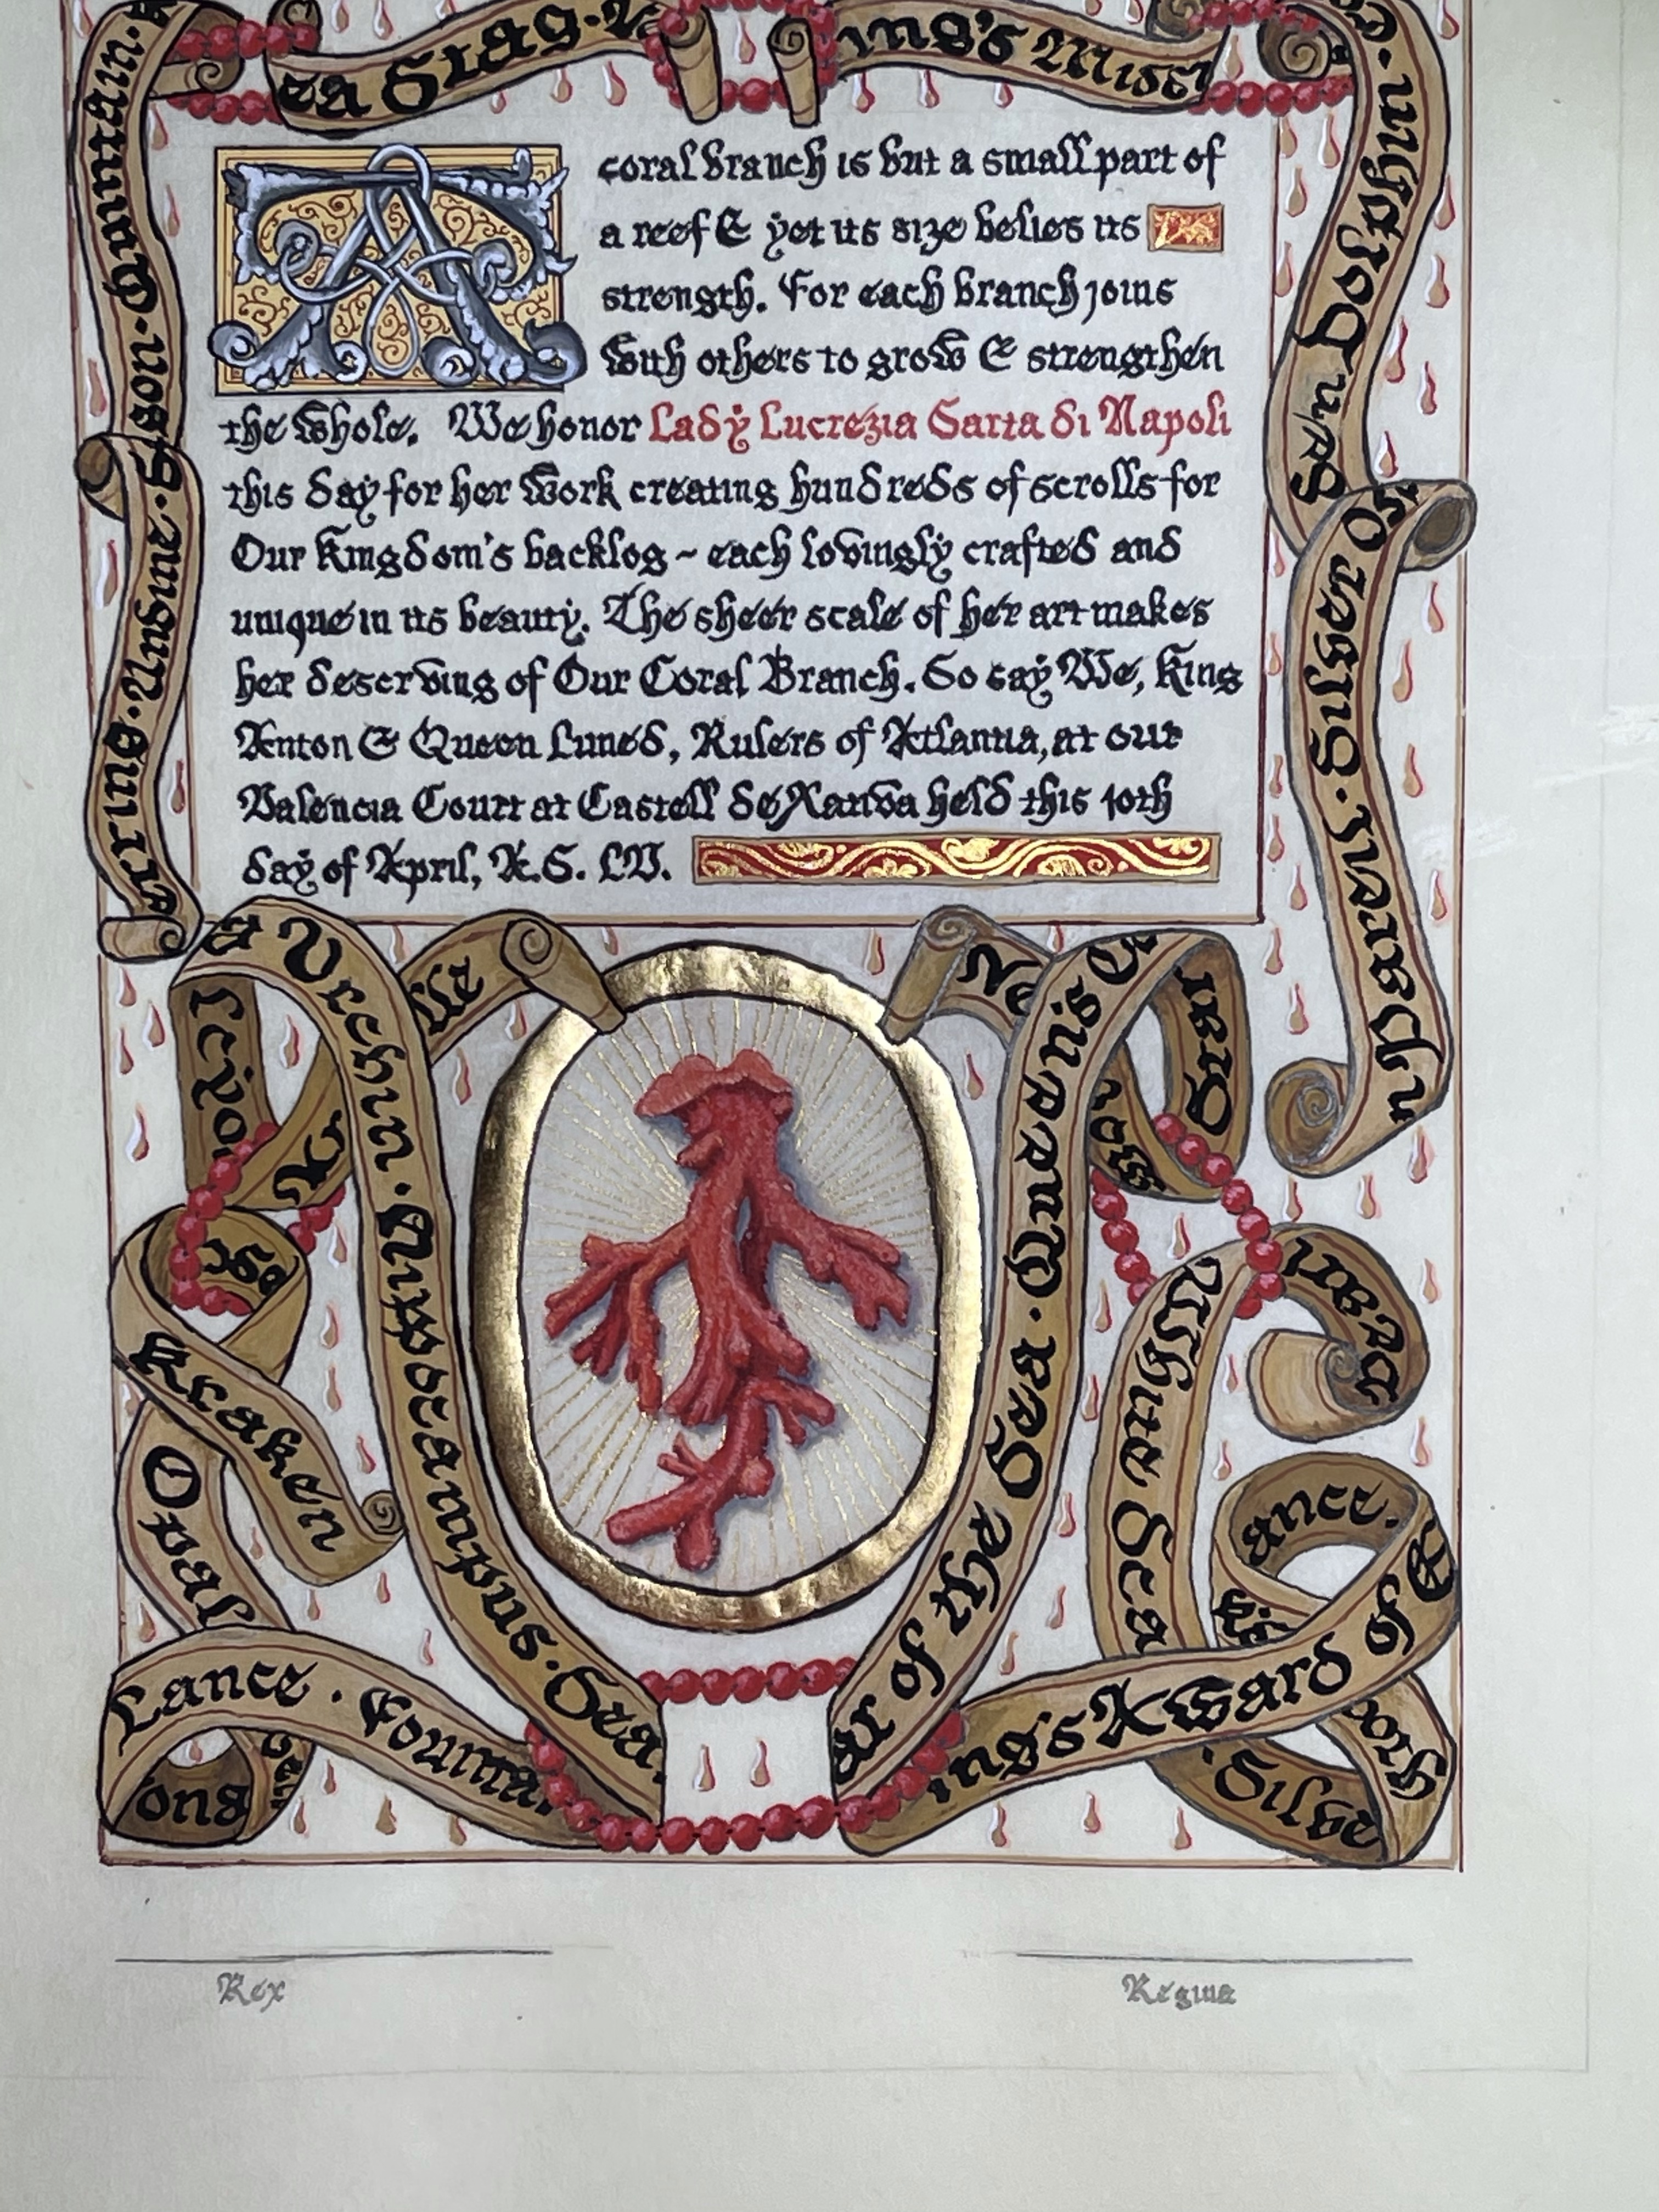 ea Stag.
ing's Missi
A coral branch is but a small part of
a reef & yet its size belies its
strength. For each branch joins
with others to grow & strengthen
the whole. We honor Lady Lucrezia Sarta di Napoli
this day for her work creating hundreds of scrolls for
Our Kingdom's backlog ~ each lovingly crafted and
unique in its beauty. The sheer scale of her art makes
her deserving of Our Coral Branch. So say We, King
Anton & Queen Luned, Rulers of Atlantia, at our
Valencia Court at Castell de Xativa held this 10th
day of April, A.S. LV.
Undine.
Sea Dolphin.
Golden
Dolphin
a Urchin. Hippocampus. Sea
Kraken
Opal
Lance. Fountai
ar of the Sea. Queen's C
White Sca
ing's Award of E
ance.
Silve
Rex
Regina